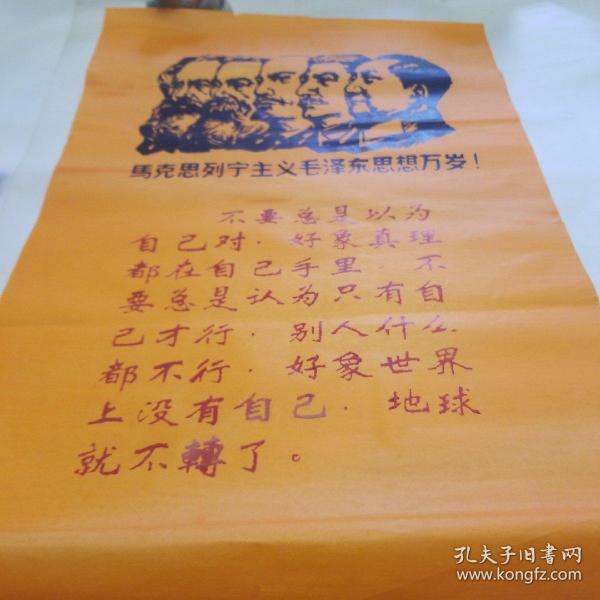 馬克思列宁主义毛泽东思想万岁！
不要总是以为
自己对．好象真理
都在自己手里．不
要总是认为只有自
己才行．别人什么
都不行．好象世界
上没有自己．地球
就不轉了。
孔夫子旧書网
www.kongfz.com